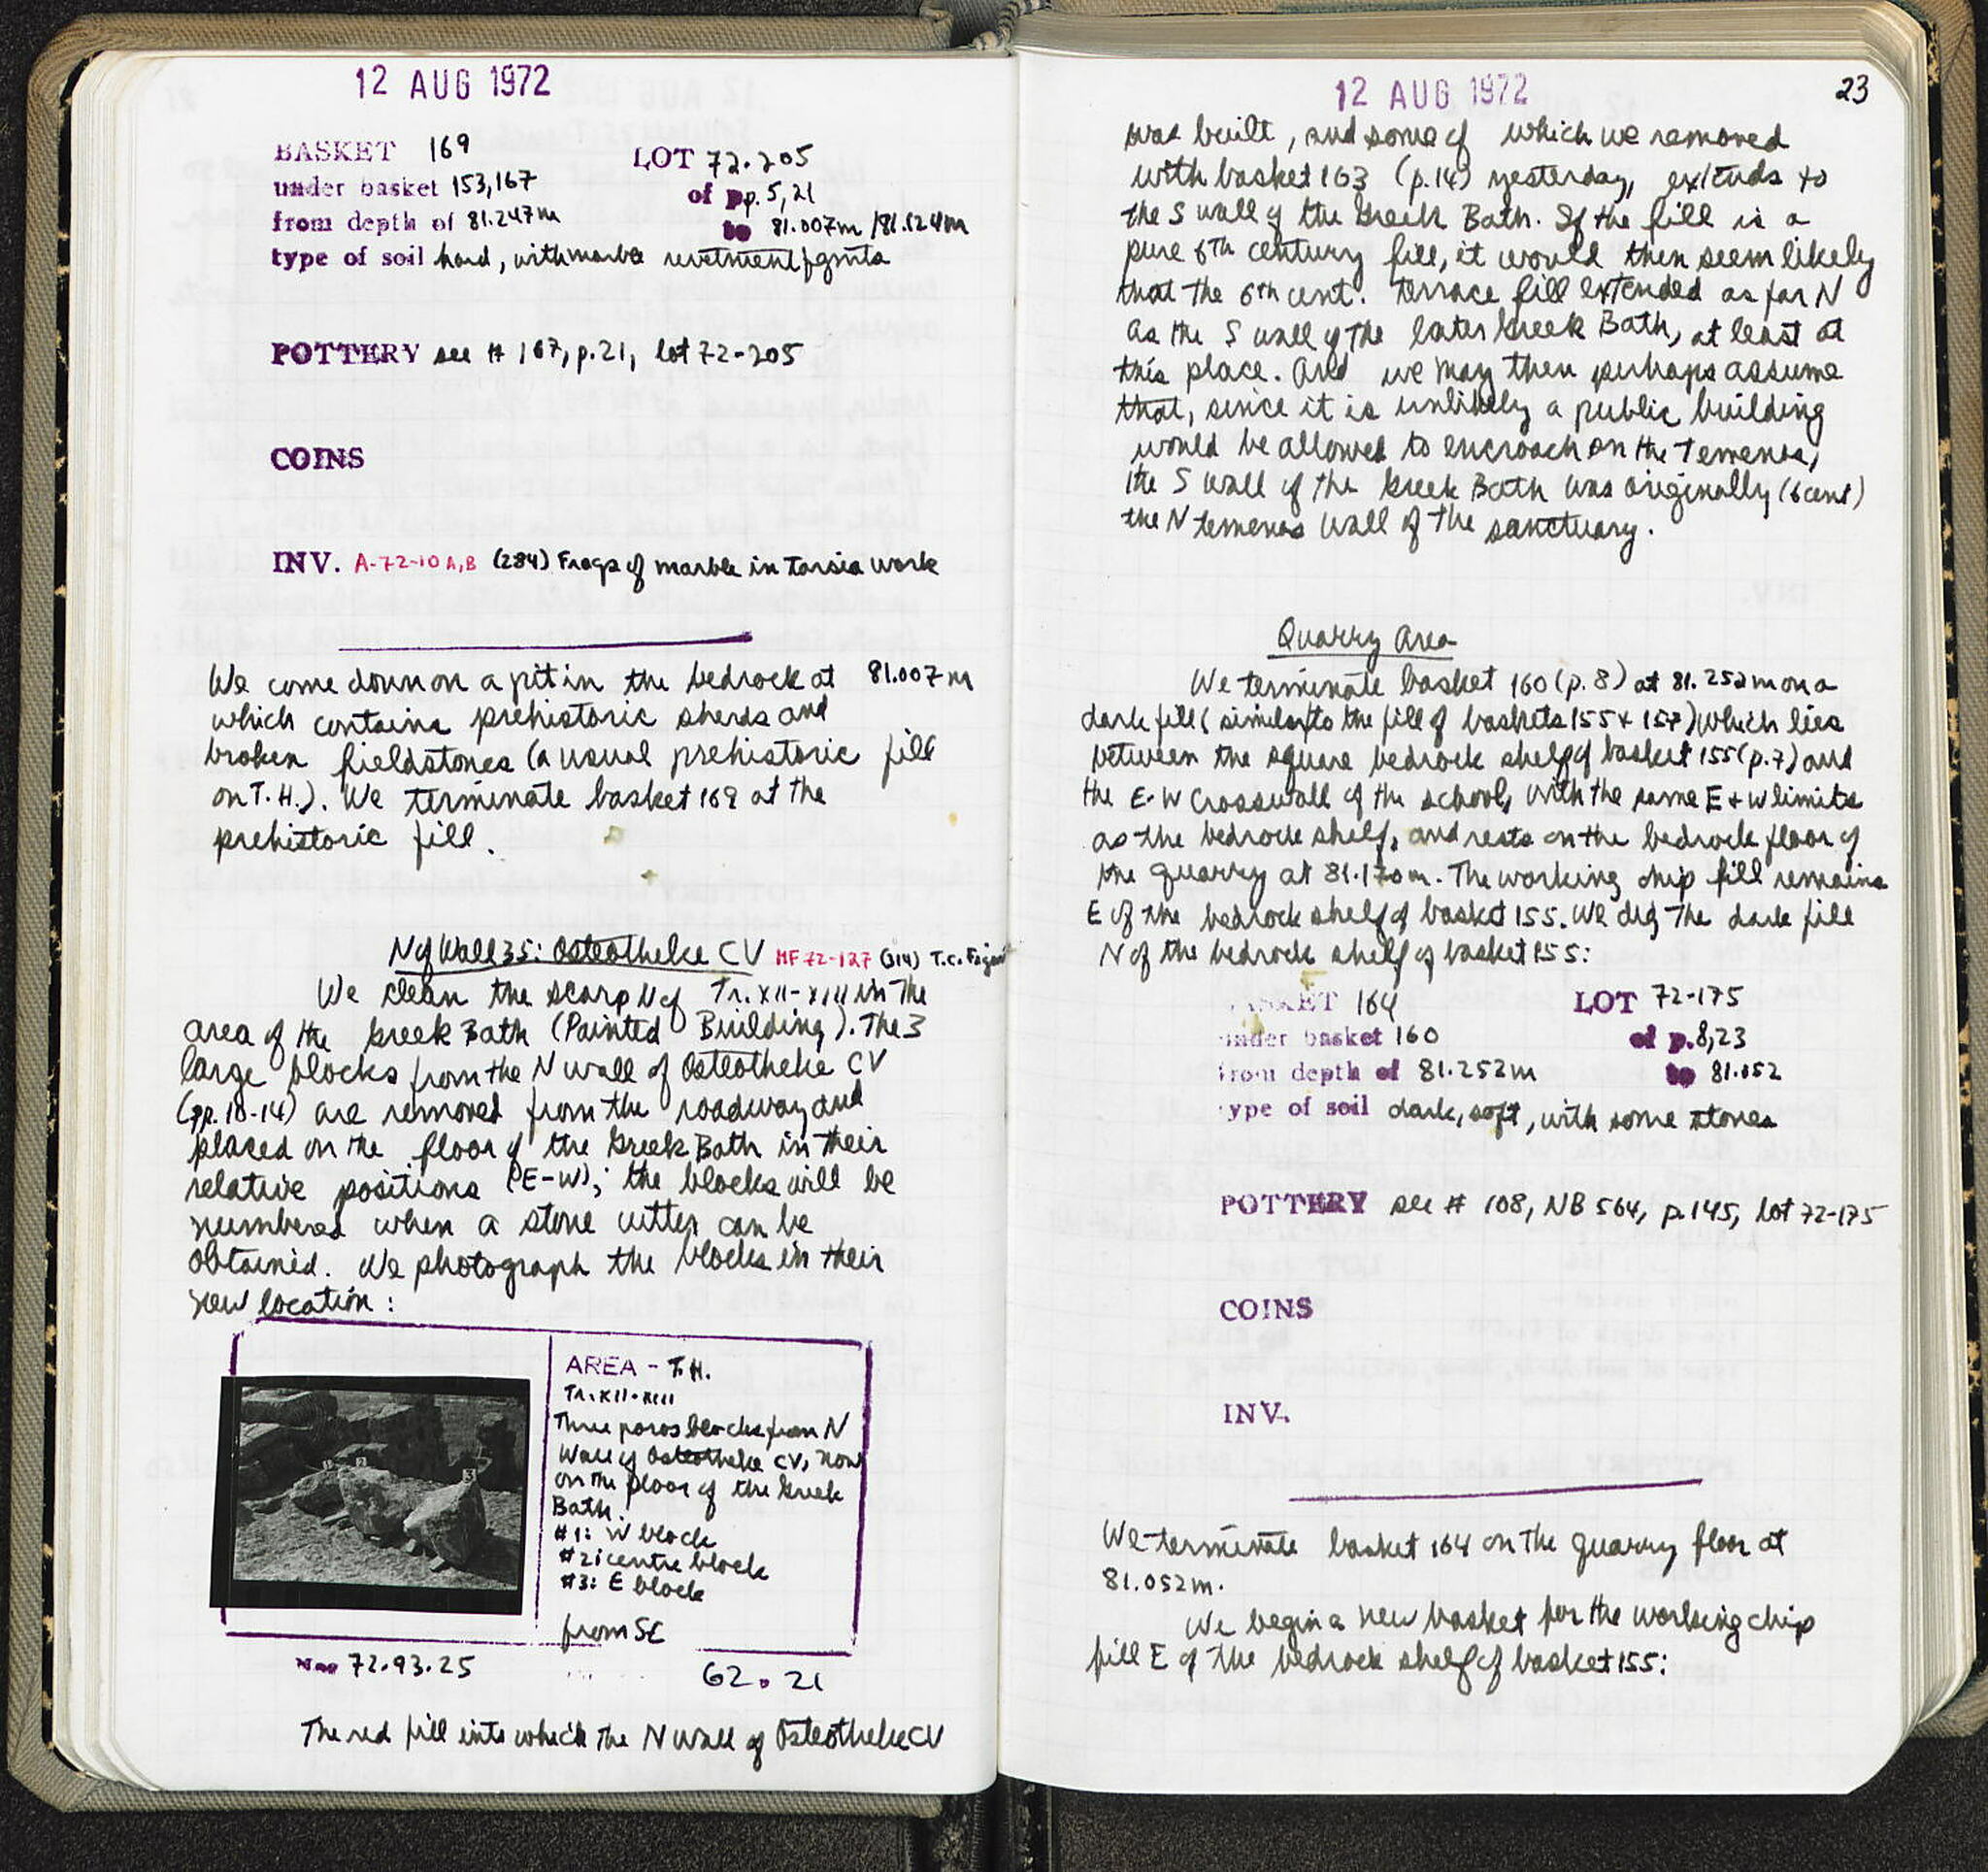 12 AUG 1972
BASKET 169 LOT 72-205
under basket 153,167 of pp. 5, 21
from depth of 81.247m to 81.007m /81.124m
type of soil hard, with marble revetment fgmts
POTTERY see # 167, p.21, lot 72-205
COINS
INV. A-72-10 A,B (284) Frags of marble in tarsia work
We come down on a pit in the bedrock at 81.007m
which contains prehistoric sherds and
broken fieldstones (a usual prehistoric fill
on T.H.). We terminate basket 169 at the
prehistoric fill.
N of Wall 35: Osteotheke CV MF 72-127 (314) T.C. Figurine
We clean the scarp N of Tr. XII-XIII in the
area of the Greek Bath (Painted Building). The 3
large blocks from the N wall of Osteotheke CV
(pp. 10-14) are removed from the roadway and
placed on the floor of the Greek Bath in their
relative positions (E-W); the blocks will be
numbered when a stone cutter can be
obtained. We photograph the blocks in their
new location:
1 2 3
AREA - T.H.
Tr. XII-XIII
Three poros blocks from N
Wall of Osteotheke CV, now
on the floor of the Greek
Bath.
#1: W block
#2: centre block
#3: E block
from SE
72.93.25 62.21
The red fill into which the N wall of Osteotheke CV
12 AUG 1972 23
was built, and some of which we removed
with basket 163 (p.14) yesterday, extends to
the S wall of the Greek Bath. If the fill is a
pure 6th century fill, it would then seem likely
that the 6th cent. terrace fill extended as far N
as the S wall of the later Greek Bath, at least at
this place. And we may then perhaps assume
that, since it is unlikely a public building
would be allowed to encroach on the Temenos,
the S wall of the Greek Bath was originally (6 cent)
the N temenos wall of the sanctuary.
Quarry Area
We terminate basket 160 (p.8) at 81.252m on a
dark fill (similar to the fill of baskets 155 + 157) which lies
between the square bedrock shelf of basket 155 (p.7) and
the E-W Crosswall of the school, with the same E + W limits
as the bedrock shelf, and rests on the bedrock floor of
the quarry at 81.170m. The working chip fill remains
E of the bedrock shelf of basket 155. We dig the dark fill
N of the bedrock shelf of basket 155:
BASKET 164 LOT 72-175
under basket 160 of p.8,23
from depth of 81.252m to 81.052
type of soil dark, soft, with some stones
POTTERY see # 108, NB 564, p.145, lot 72-175
COINS
INV.
We terminate basket 164 on the quarry floor at
81.052m.
We begin a new basket for the working chip
fill E of the bedrock shelf of basket 155: